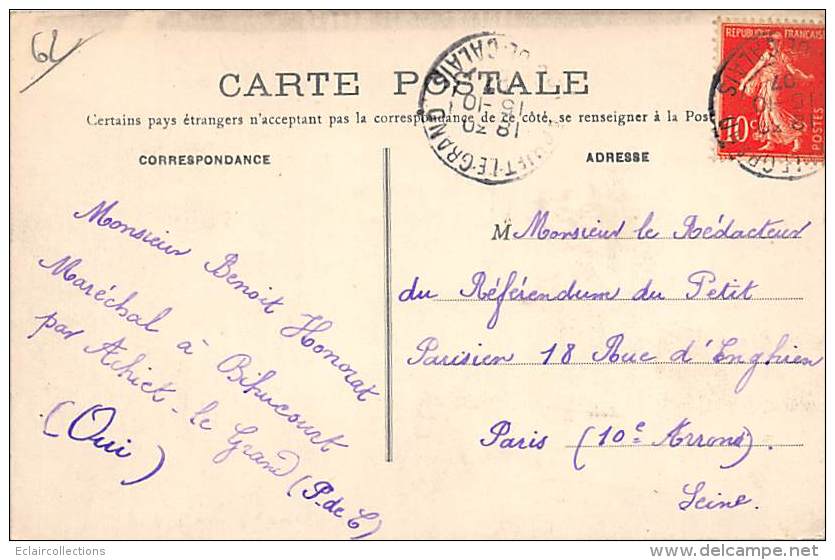 62
CARTE POSTALE
Certains pays étrangers n'acceptant pas la correspondance de ce côté, se renseigner à la Post
CORRESPONDANCE
Monsieur Benoit Honorat
Maréchal à Bihucourt
par Achiet-le Grand (P-de C)
(Oui)
ADRESSE
M Monsieur le Rédacteur
du Référendum du Petit
Parisien 18 Rue d'Enghien
Paris (10e Arrond).
Seine.
REPUBLIQUE FRANÇAISE
10c
POSTES
LE-GRAND
DE-CALAIS
18 30
15-10
07
Eclaircollections
delcampe.net